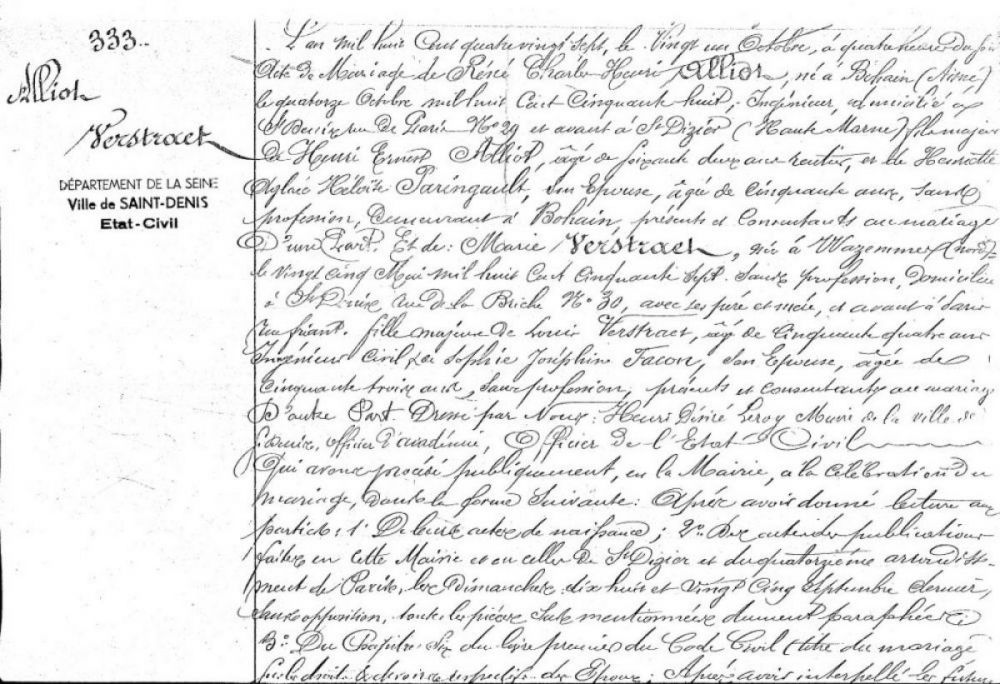 333.
Alliot
Verstraet
DÉPARTEMENT DE LA SEINE
Ville de SAINT-DENIS
Etat-Civil
L'an mil huit Cent quatre vingt sept, le Vingt un Octobre, à quatre heures du soir
Acte de Mariage de Réné Charles Henri Alliot, né à Bohain (Aisne)
le quatorze Octobre mil huit Cent Cinquante huit, Ingénieur, domicilié à
St Denis rue de Paris No 29 et avant à St Dizier (Haute Marne) fils majeur
de Henri Ernest Alliot, âgé de soixante deux ans rentier, et de Henriette
Aglaé Héloïse Paringault, son Epouse, âgée de Cinquante ans, sans
profession, Demeurant à Bohain, présents et Consentants au mariage
D'une Part. Et de: Marie Verstraet, née à Wazemmes (nord)
le vingt cinq Mai mil huit Cent Cinquante Sept. Sans profession, Domiciliée
à St Denis, rue de la Briche No 30, avec ses père et mère, et avant à Paris
fille majeure de Louis Verstraet, âgé de Cinquante quatre ans
Ingénieur Civil & de Sophie Joséphine Facon, Son Epouse, âgée de
Cinquante trois ans, Sans profession, présents et consentants au mariage
D'autre Part Dressé par Nous: Henri Désiré Leroy Maire de la ville de
St Denis, officier d'académie, Officier de l'Etat Civil
Qui avons procédé publiquement, en la Mairie, à la Célébration du
mariage, dans la forme Suivante: Après avoir donné lecture aux
parties: 1o De leurs actes de naissance; 2o Des actes de publications
faites en Cette Mairie et en celles de St Dizier et du quatorzième arrondisse-
ment de Paris, les Dimanches dix huit et Vingt Cinq Septembre dernier,
Sans opposition, toutes les pièces Sus mentionnées dument paraphées;
3o Du Chapitre Six du livre premier du Code Civil (titre du mariage
sur les droits & devoirs respectifs des Epoux; Après avoir interpellé les futurs